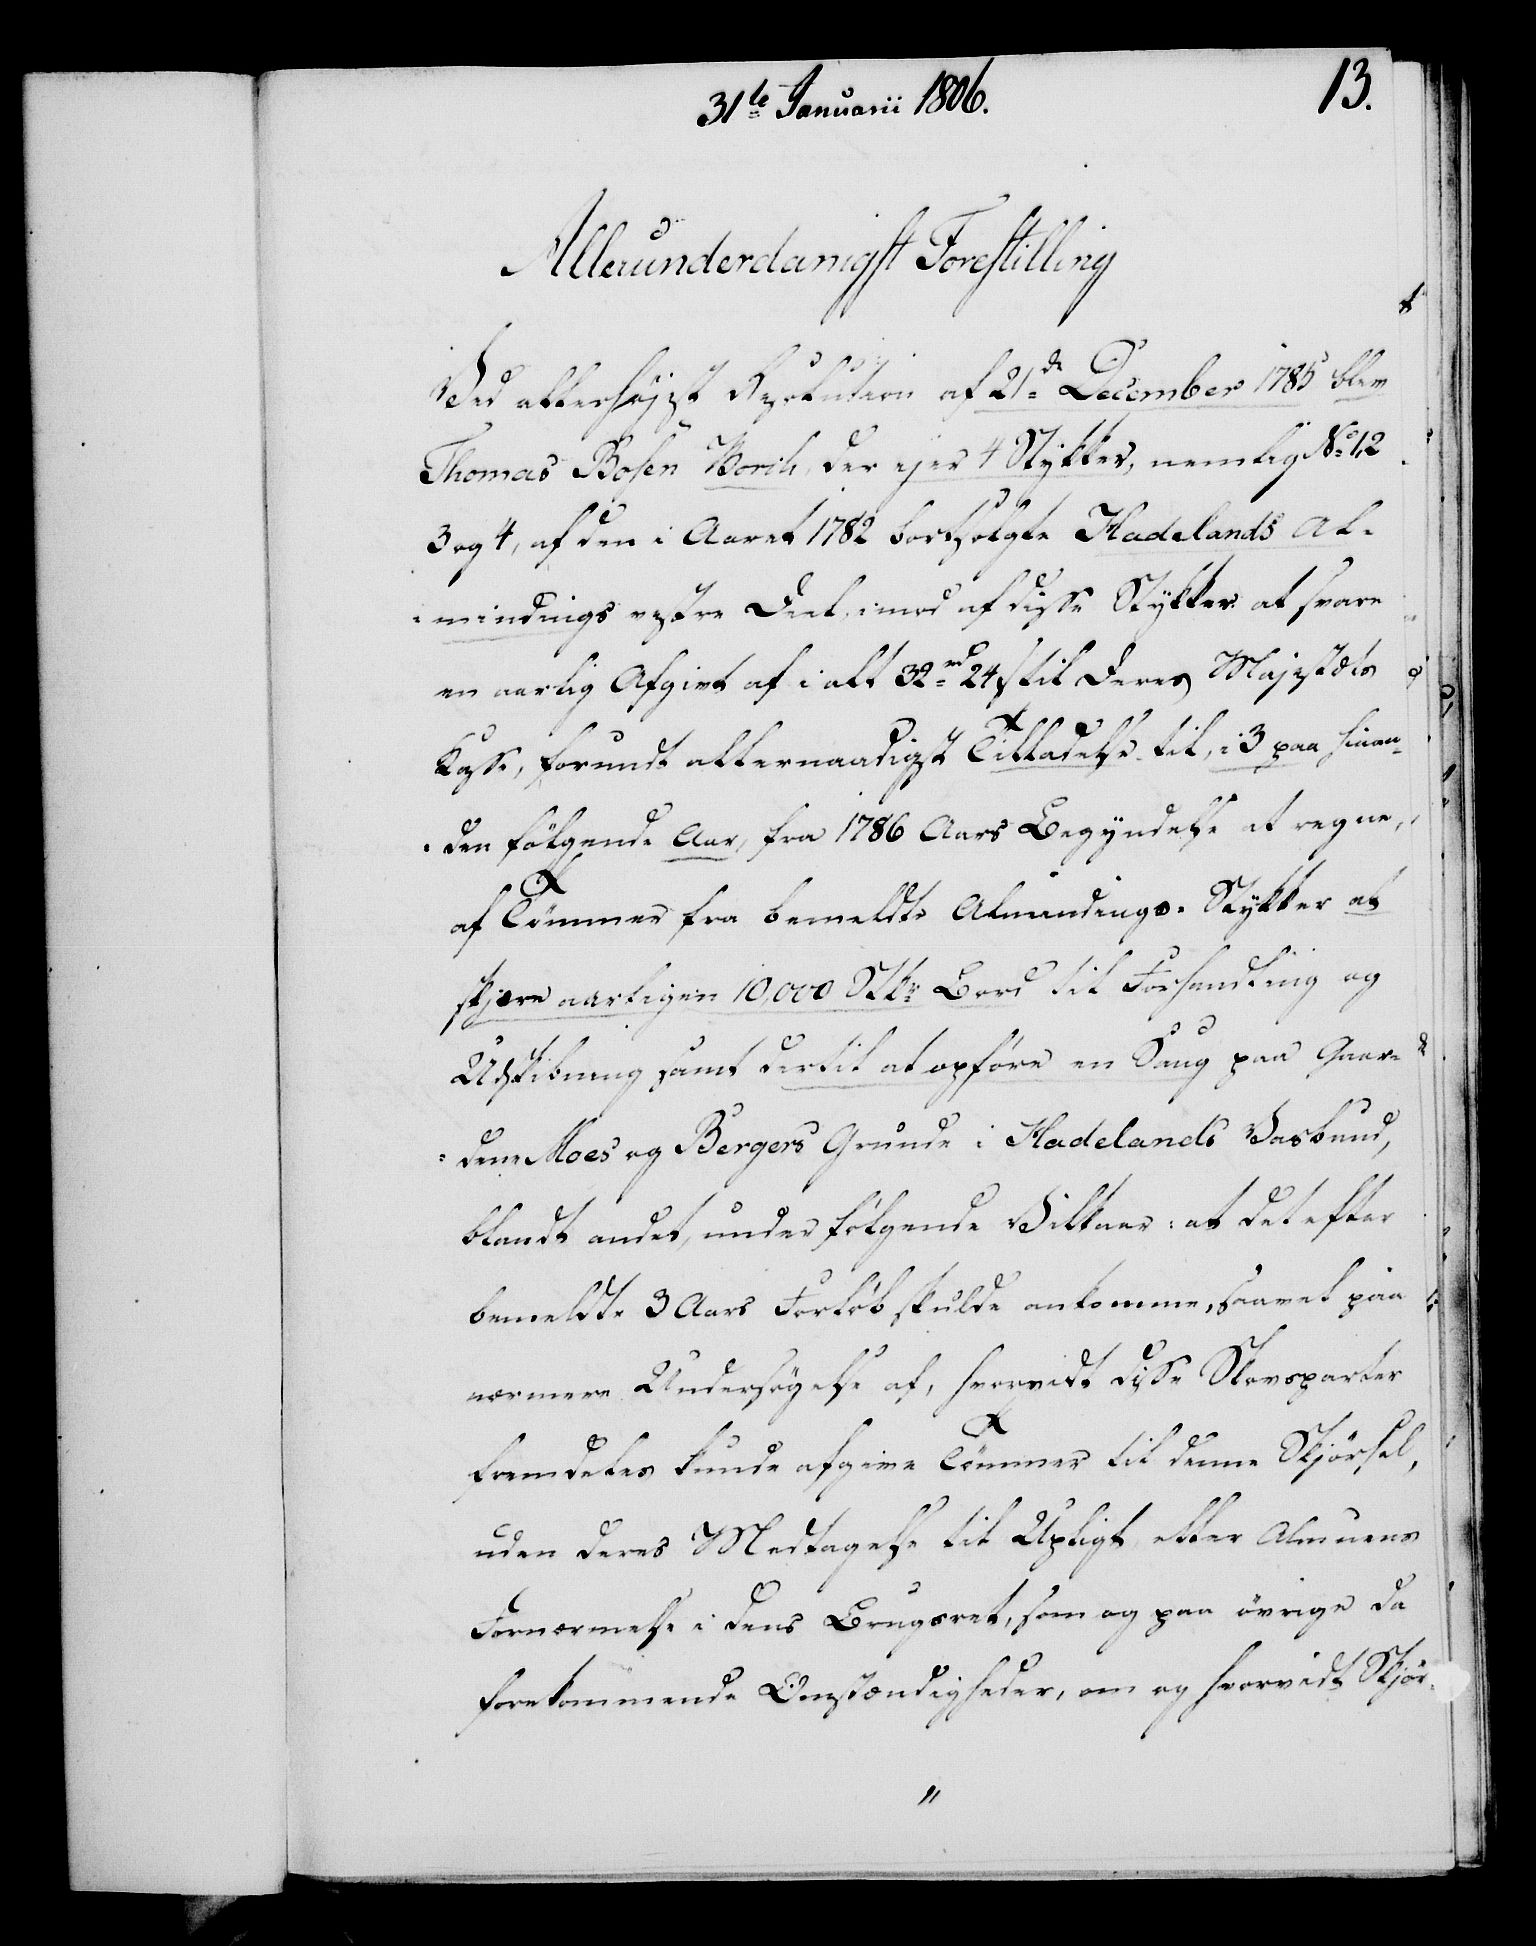 31te Januarii 1806.
13.
Allerunderdanigst Forestilling
Ved allerhøjest Resolution af 21de December 1785 blev
Thomas Bosen Worch, der ejer 4 Stykker, nemlig No 1, 2
3 og 4, af den i Aaret 1782 bortsolgte Hadelands Al-
mindings vestre Deel, imod af disse Stykker at svare
en aarlig Afgivt af i alt 32 rd 24 s til Deres Majestæts
Kasse, forundt allernaadigst Tilladelse til, i 3 paa hinan-
den følgende Aar, fra 1786 Aars Begyndelse at regne,
af Tømmer fra bemeldte Almindings-Stykker at
skjære aarligen 10,000 Stkr Bord til Forhandling og
Udskibning samt dertil at opføre en Saug paa Gaar-
dene Moes og Bergers Grunde i Hadelands Vasbund,
blandt andet, under følgende Vilkaar: at det efter
bemeldte 3 Aars Forløb skulde ankomme, saavel paa
nærmere Undersøgelse af, hvorvidt disse Skovsparter
fremdeles kunde afgive Tømmer til denne Skjørsel,
uden deres Medtagelse til Upligt eller Almuens
Fornærmelse i dens Brugsret, som og paa øvrige da
forekommende Omstændigheder, om og hvorvidt Skjør-
"